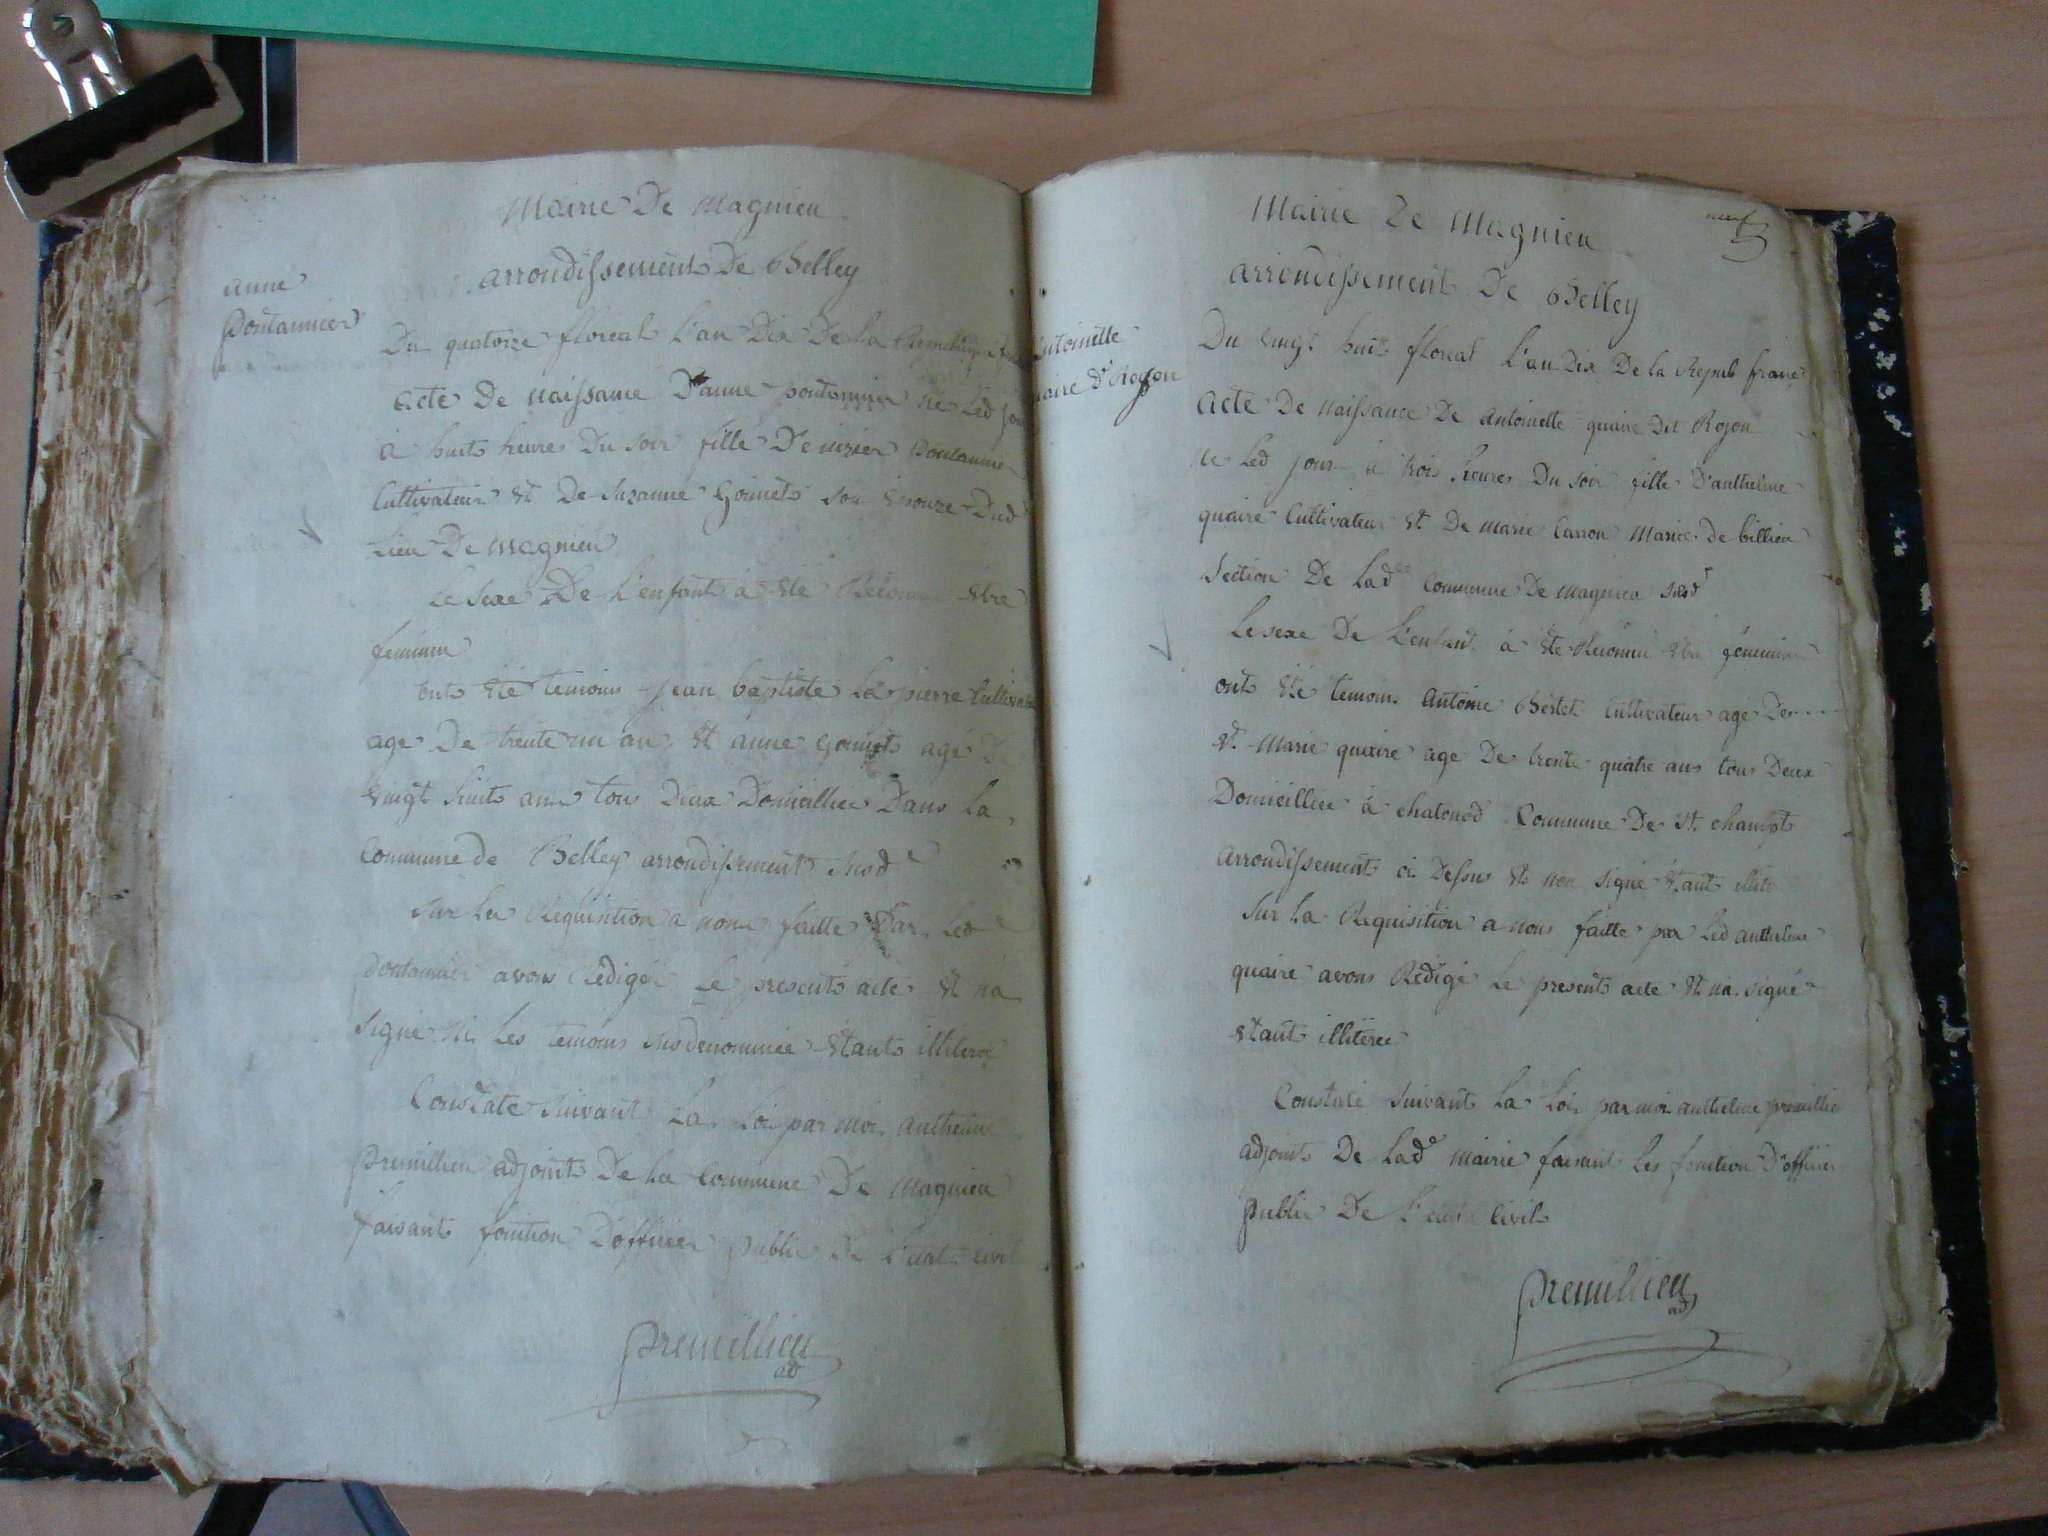 Mairie De Magnieu
arrondissement De Belley
anne
pontannier
Du quatorze floreal L'an Dix De la
acte De naissance D'anne pontannier né Led jour
a huit heures Du soir fille De nizier pontannier
Cultivateur et De Suzanne Gonnet son Epouze Dud
Lieu De Magnieu
Le sexe De L'enfant a été Reconnu être
feminin
ont été temoins jean baptiste La pierre Cultivateur
age De trente un an et anne Gonnet agé De
vingt huit ans tous Deux Domicilliée Dans La
Commune de Belley arrondissement susd
Sur La Requisition a nous faitte par Led
pontannier avons Redigé Le present acte et n'a
signé ni Les temoins susdenommée étant illiteré
Constate suivant La Loi par moi anthelme
premillieu adjoint De La Commune De Magnieu
faisant fonction D'officier public De L'etat civil
premillieu
ad
neuf
Mairie De Magnieu
arrondissement De Belley
antoinette
quaire d. Rojon
Du vingt huit floreal L'an Dix De la Repub franç
acte De naissance De antoinette quaire Dit Rojon
né Led jour a trois heures Du soir fille D'anthelme
quaire Cultivateur et De marie Carron Mariée de billieu
Section De Lad Commune De magnieu susd
Le sexe De L'enfant a été Reconnu être féminin
ont été temoins antoine Bertet Cultivateur agé De
et Marie quaire age De trente quatre ans tous Deux
Domicilliée à chatonod Commune De St. champt
arrondissement ci Dessus et non signé étant illité
Sur La Requisition a nous faitte par Led anthelme
quaire avons Redigé Le present acte et n'a signé
étant illiterée
Constaté suivant La Loi par moi anthelme premillieu
adjoint De Lad mairie faisant Les fonction D'officier
public De L'etat Civil
premillieu
ad